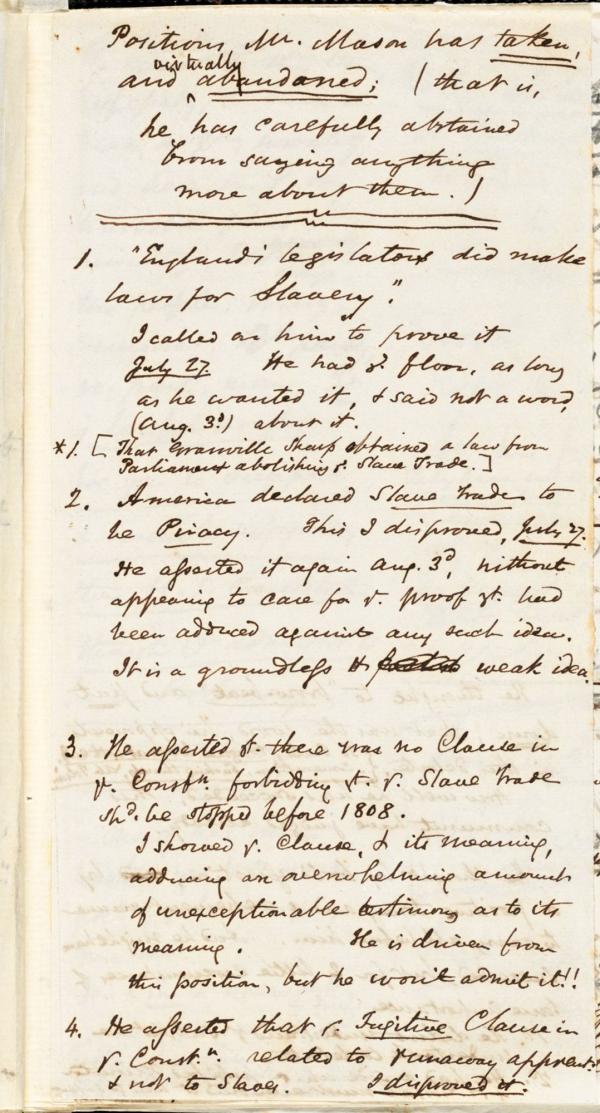 Positions Mr. Mason has taken,
and virtually abandoned; (that is,
he has carefully abstained
from saying anything
more about them.)
1. "England's legislators did make
laws for Slavery".
I called on him to prove it
July 27. He had ye. floor, as long
as he wanted it, & said not a word,
(Aug. 3d.) about it.
*1. [That Granville Sharp obtained a law from
Parliament abolishing ye. Slave Trade.]
2. America declared Slave Trade to
be Piracy. This I disproved, July 27.
He asserted it again Aug. 3d, without
appearing to care for ye. proof yt. had
been adduced against any such idea.
It is a groundless & weak idea.
3. He asserted yt. there was no Clause in
ye. Constn. forbidding yt. ye. Slave Trade
shd. be stopped before 1808.
I showed ye. Clause, & its meaning,
adducing an overwhelming amount
of unexceptionable testimony as to its
meaning. He is driven from
this position, but he won't admit it!!
4. He asserted that ye. Fugitive Clause in
ye. Const.n. related to runaway apprent.
& not to Slaves. I disproved it.